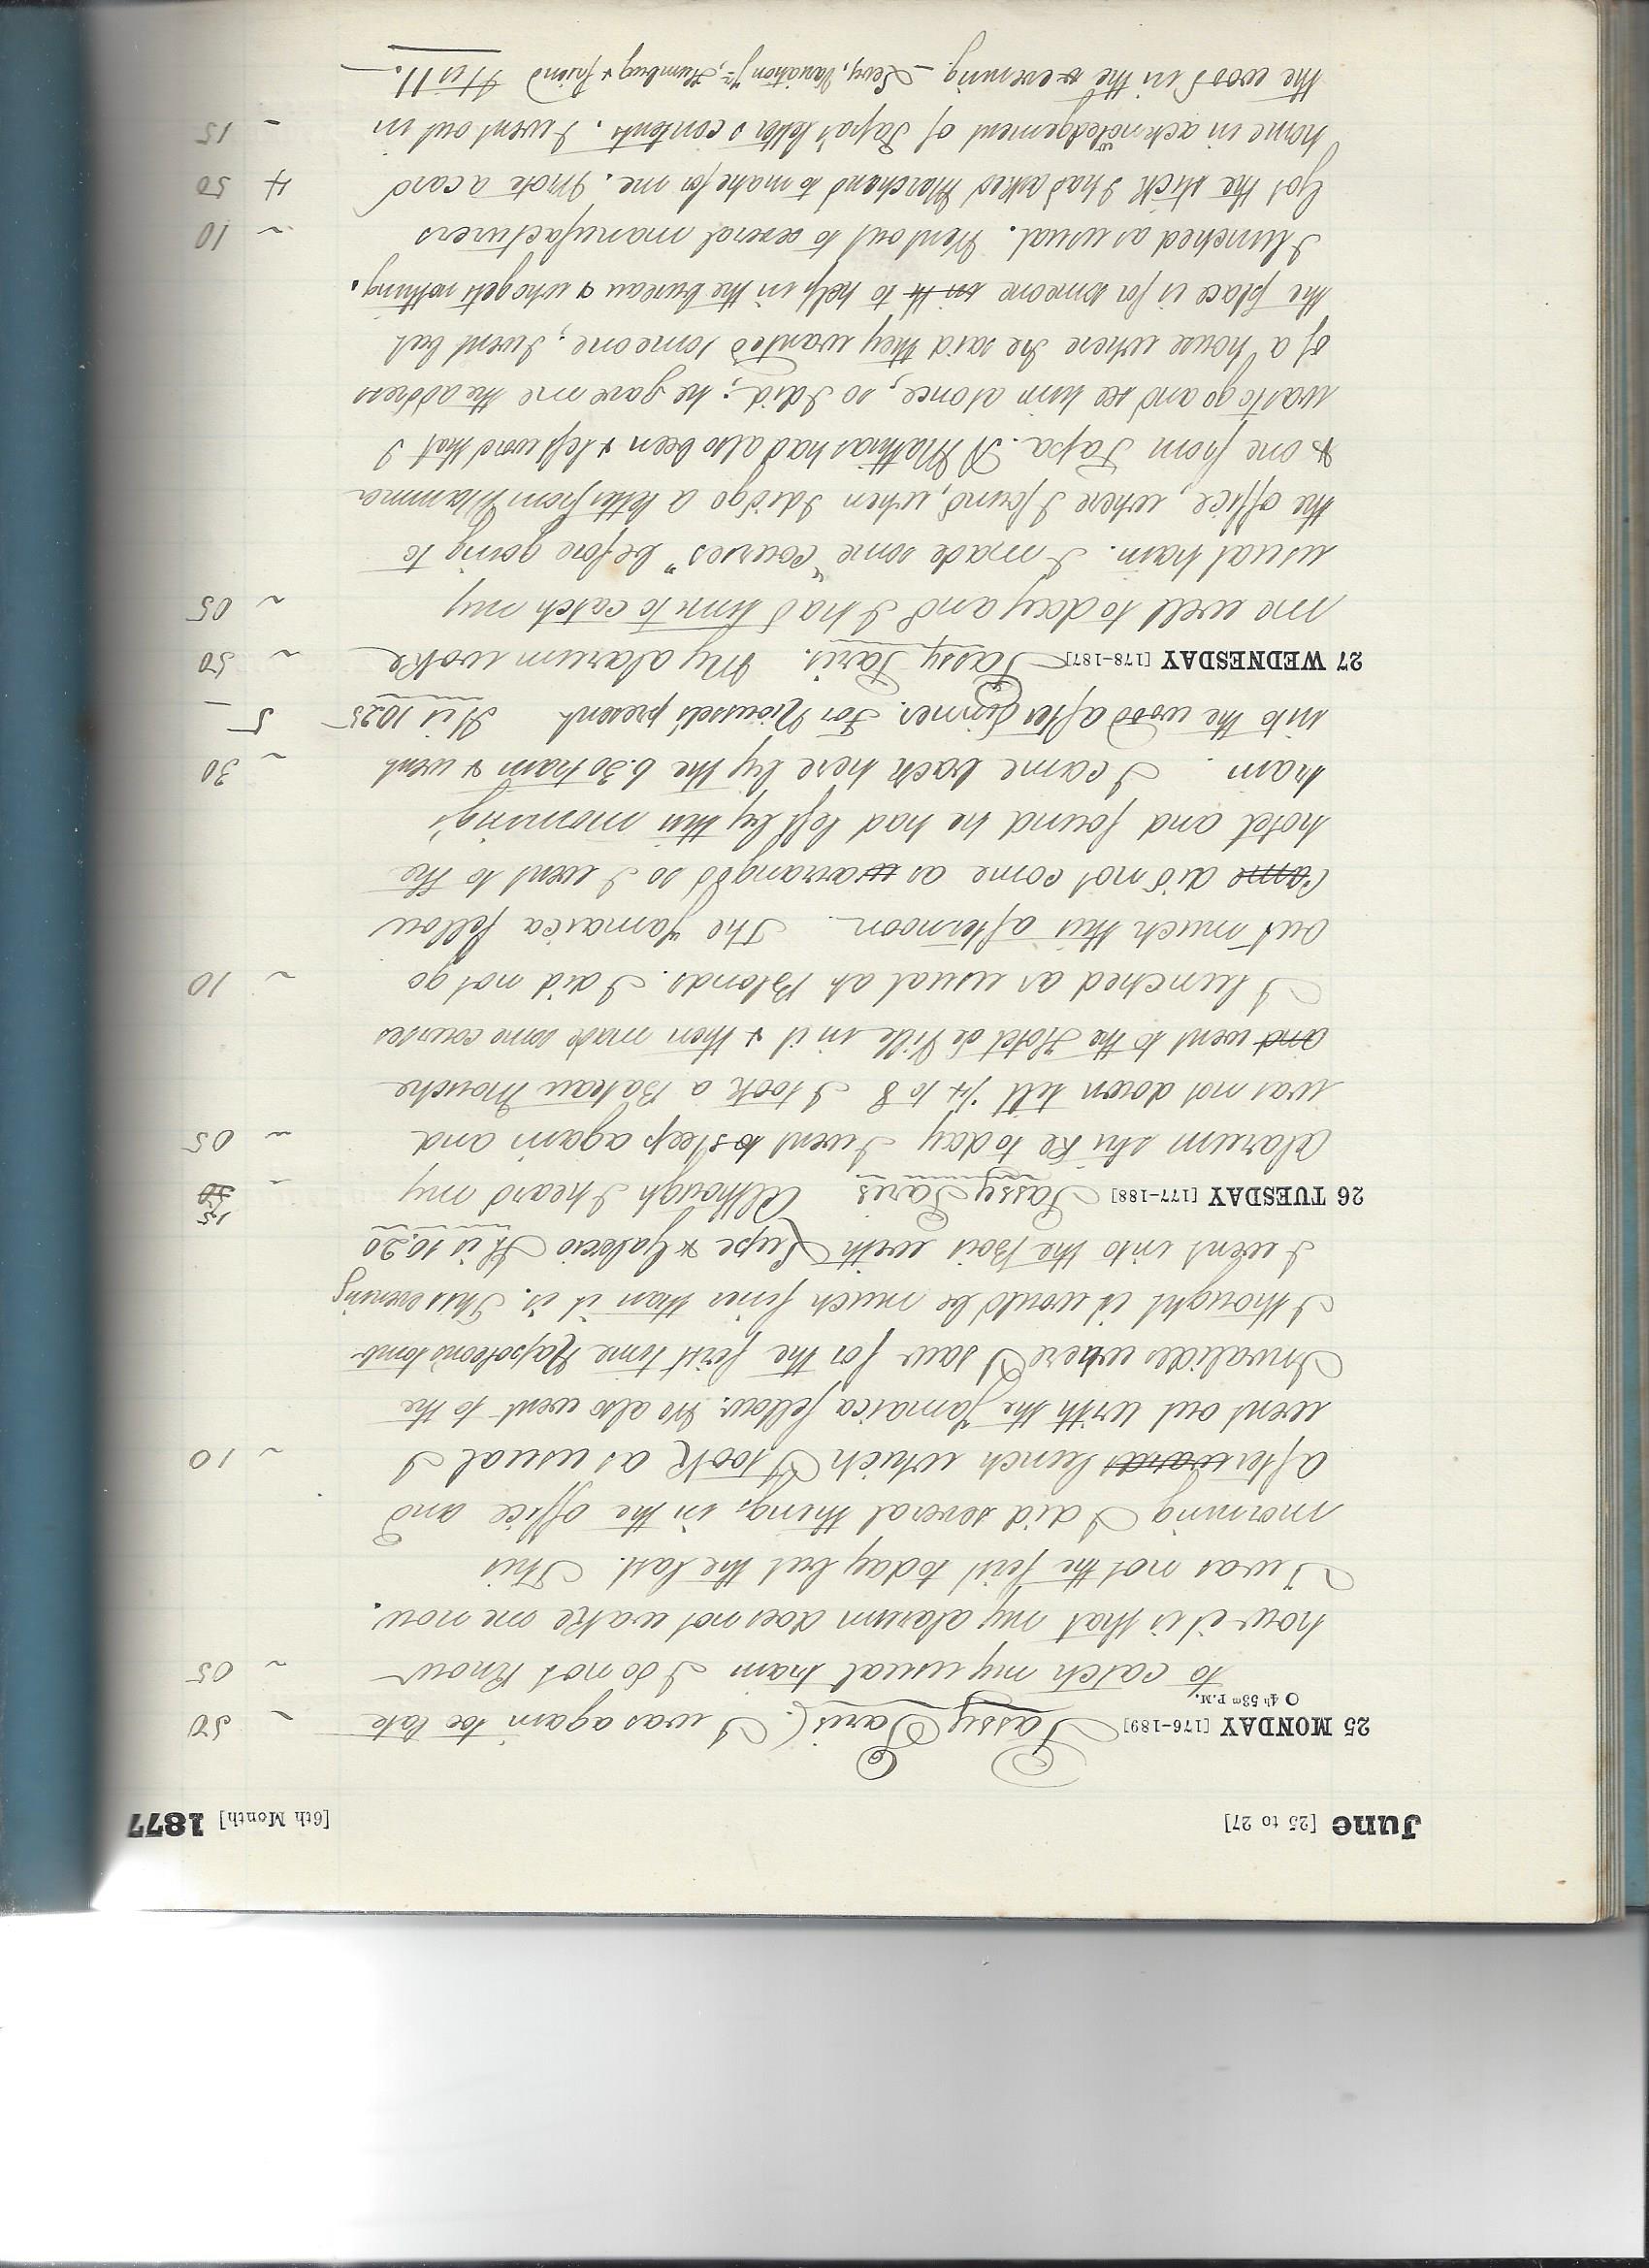 June [25 to 27] [6th Month] 1877
25 MONDAY [176-189] Passy Paris. I was again too late ~ 50
O 4h 53m P.M.
to catch my usual train I do not know ~ 05
how it is that my alarum does not wake me now.
I was not the first today but the last. This
morning I did several things in the office and
after wards lunch which I took as usual I ~ 10
went out with the Jamaica fellow. We also went to the
Invalides where I saw for the first time Napoleons tomb
I thought it would be much finer than it is. This evening
I went into the Bois with Lupe & It is 10.20
26 TUESDAY [177-188] Passy Paris Although I heard my ~ 15
alarum strike today I went to sleep again and ~ 05
was not down till 1/4 to 8 I took a Bateau Mouche
and went to the Hotel de Ville in it & then made some courses
I lunched as usual at Blonds. I did not go ~ 10
out much this afternoon. The Jamaica fellow
came did not come as arranged so I went to the
hotel and found he had left by this morning's
train. I came back here by the 6.30 train & went ~ 30
into the wood after dinner. For present It is 10.25 5 –
27 WEDNESDAY [178-187] Passy Paris. My alarum woke ~ 50
me well today and I had time to catch my ~ 05
usual train. I made some "courses" before going to
the office, where I found, when I did go a letter from Mamma
& one from Papa. A Mathias had also been & left word that I
was to go and see him at once, so I did; he gave me the address
of a house where he said they wanted someone; I went but
the place is for someone to help in the bureau & who gets nothing.
I lunched as usual. Went out to several manufacturers ~ 10
Got the stick I had asked Marchand to make for me. Wrote a card 4 50
home in acknowledgement of Papa's letter & contents. I went out in – 15
the wood in the evening. – Levy, Humbug & friend Hill.